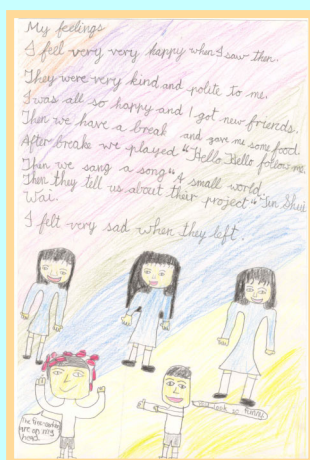 My feelings
I fell very very happy when I saw then.
They were very kind and polite to me.
I was all so happy and I got new friends.
Then we have a break and gave me some food.
After breake we played "Hello Hello follow me.
Then we sang a song "A small world.
Then they tell us about their project "Tin Shui
Wai.
I felt very sad when they left.
The fire-
are on my
head
look so funny